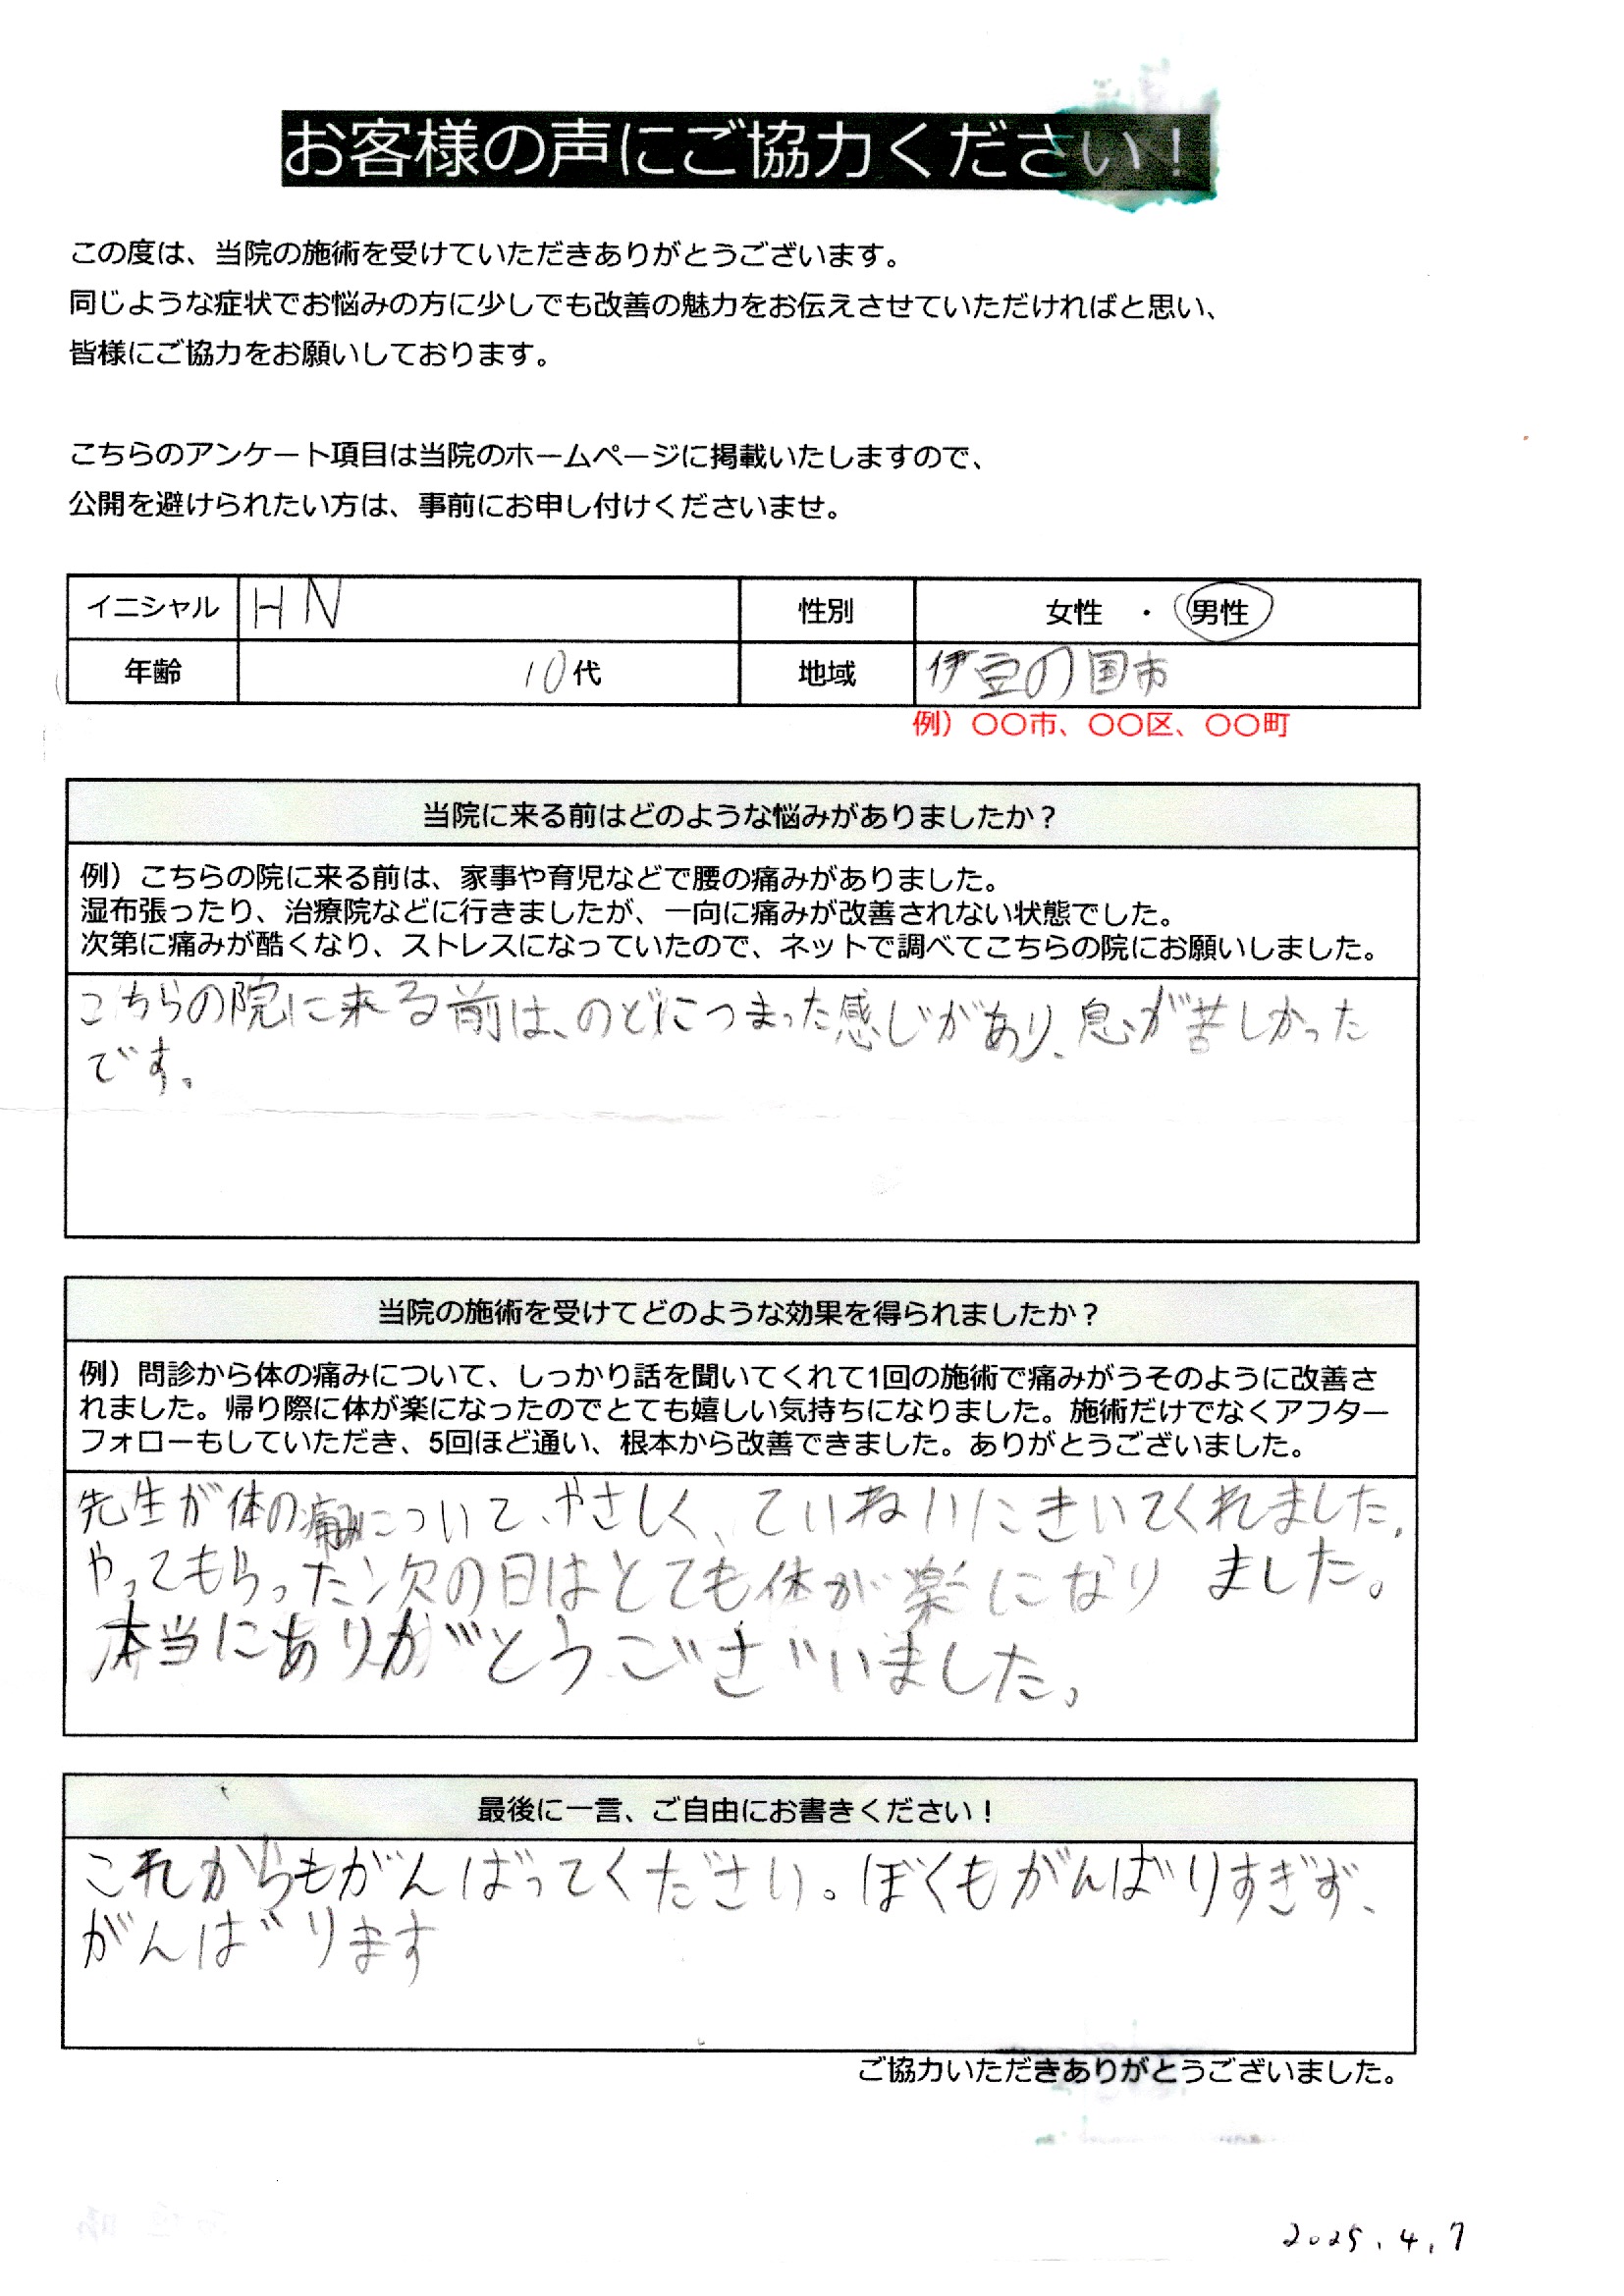 お客様の声にご協力ください！
この度は、当院の施術を受けていただきありがとうございます。
同じような症状でお悩みの方に少しでも改善の魅力をお伝えさせていただければと思い、
皆様にご協力をお願いしております。
こちらのアンケート項目は当院のホームページに掲載いたしますので、
公開を避けられたい方は、事前にお申し付けくださいませ。
イニシャル HN 性別 女性 ・ 男性
年齢 10代 地域 伊豆の国市
例）〇〇市、〇〇区、〇〇町
当院に来る前はどのような悩みがありましたか？
例）こちらの院に来る前は、家事や育児などで腰の痛みがありました。
湿布張ったり、治療院などに行きましたが、一向に痛みが改善されない状態でした。
次第に痛みが酷くなり、ストレスになっていたので、ネットで調べてこちらの院にお願いしました。
こちらの院に来る前は、のどにつまった感じがあり、息が苦しかった
です。
当院の施術を受けてどのような効果を得られましたか？
例）問診から体の痛みについて、しっかり話を聞いてくれて1回の施術で痛みがうそのように改善さ
れました。帰り際に体が楽になったのでとても嬉しい気持ちになりました。施術だけでなくアフター
フォローもしていただき、5回ほど通い、根本から改善できました。ありがとうございました。
先生が体の痛みについて、やさしく、ていねいにきいてくれました。
やってもらった次の日はとても体が楽になりました。
本当にありがとうございました。
最後に一言、ご自由にお書きください！
これからもがんばってください。ぼくもがんばりすぎず、
がんばります
ご協力いただきありがとうございました。
2025.4.7